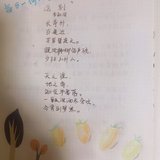 送别
李叔同
长亭外，
古道边，
芳草碧连天。
晚风拂柳笛声残，
夕阳山外山。
天之涯，
地之角，
知交半零落。
一瓢浊酒尽余欢，
今宵别梦寒。